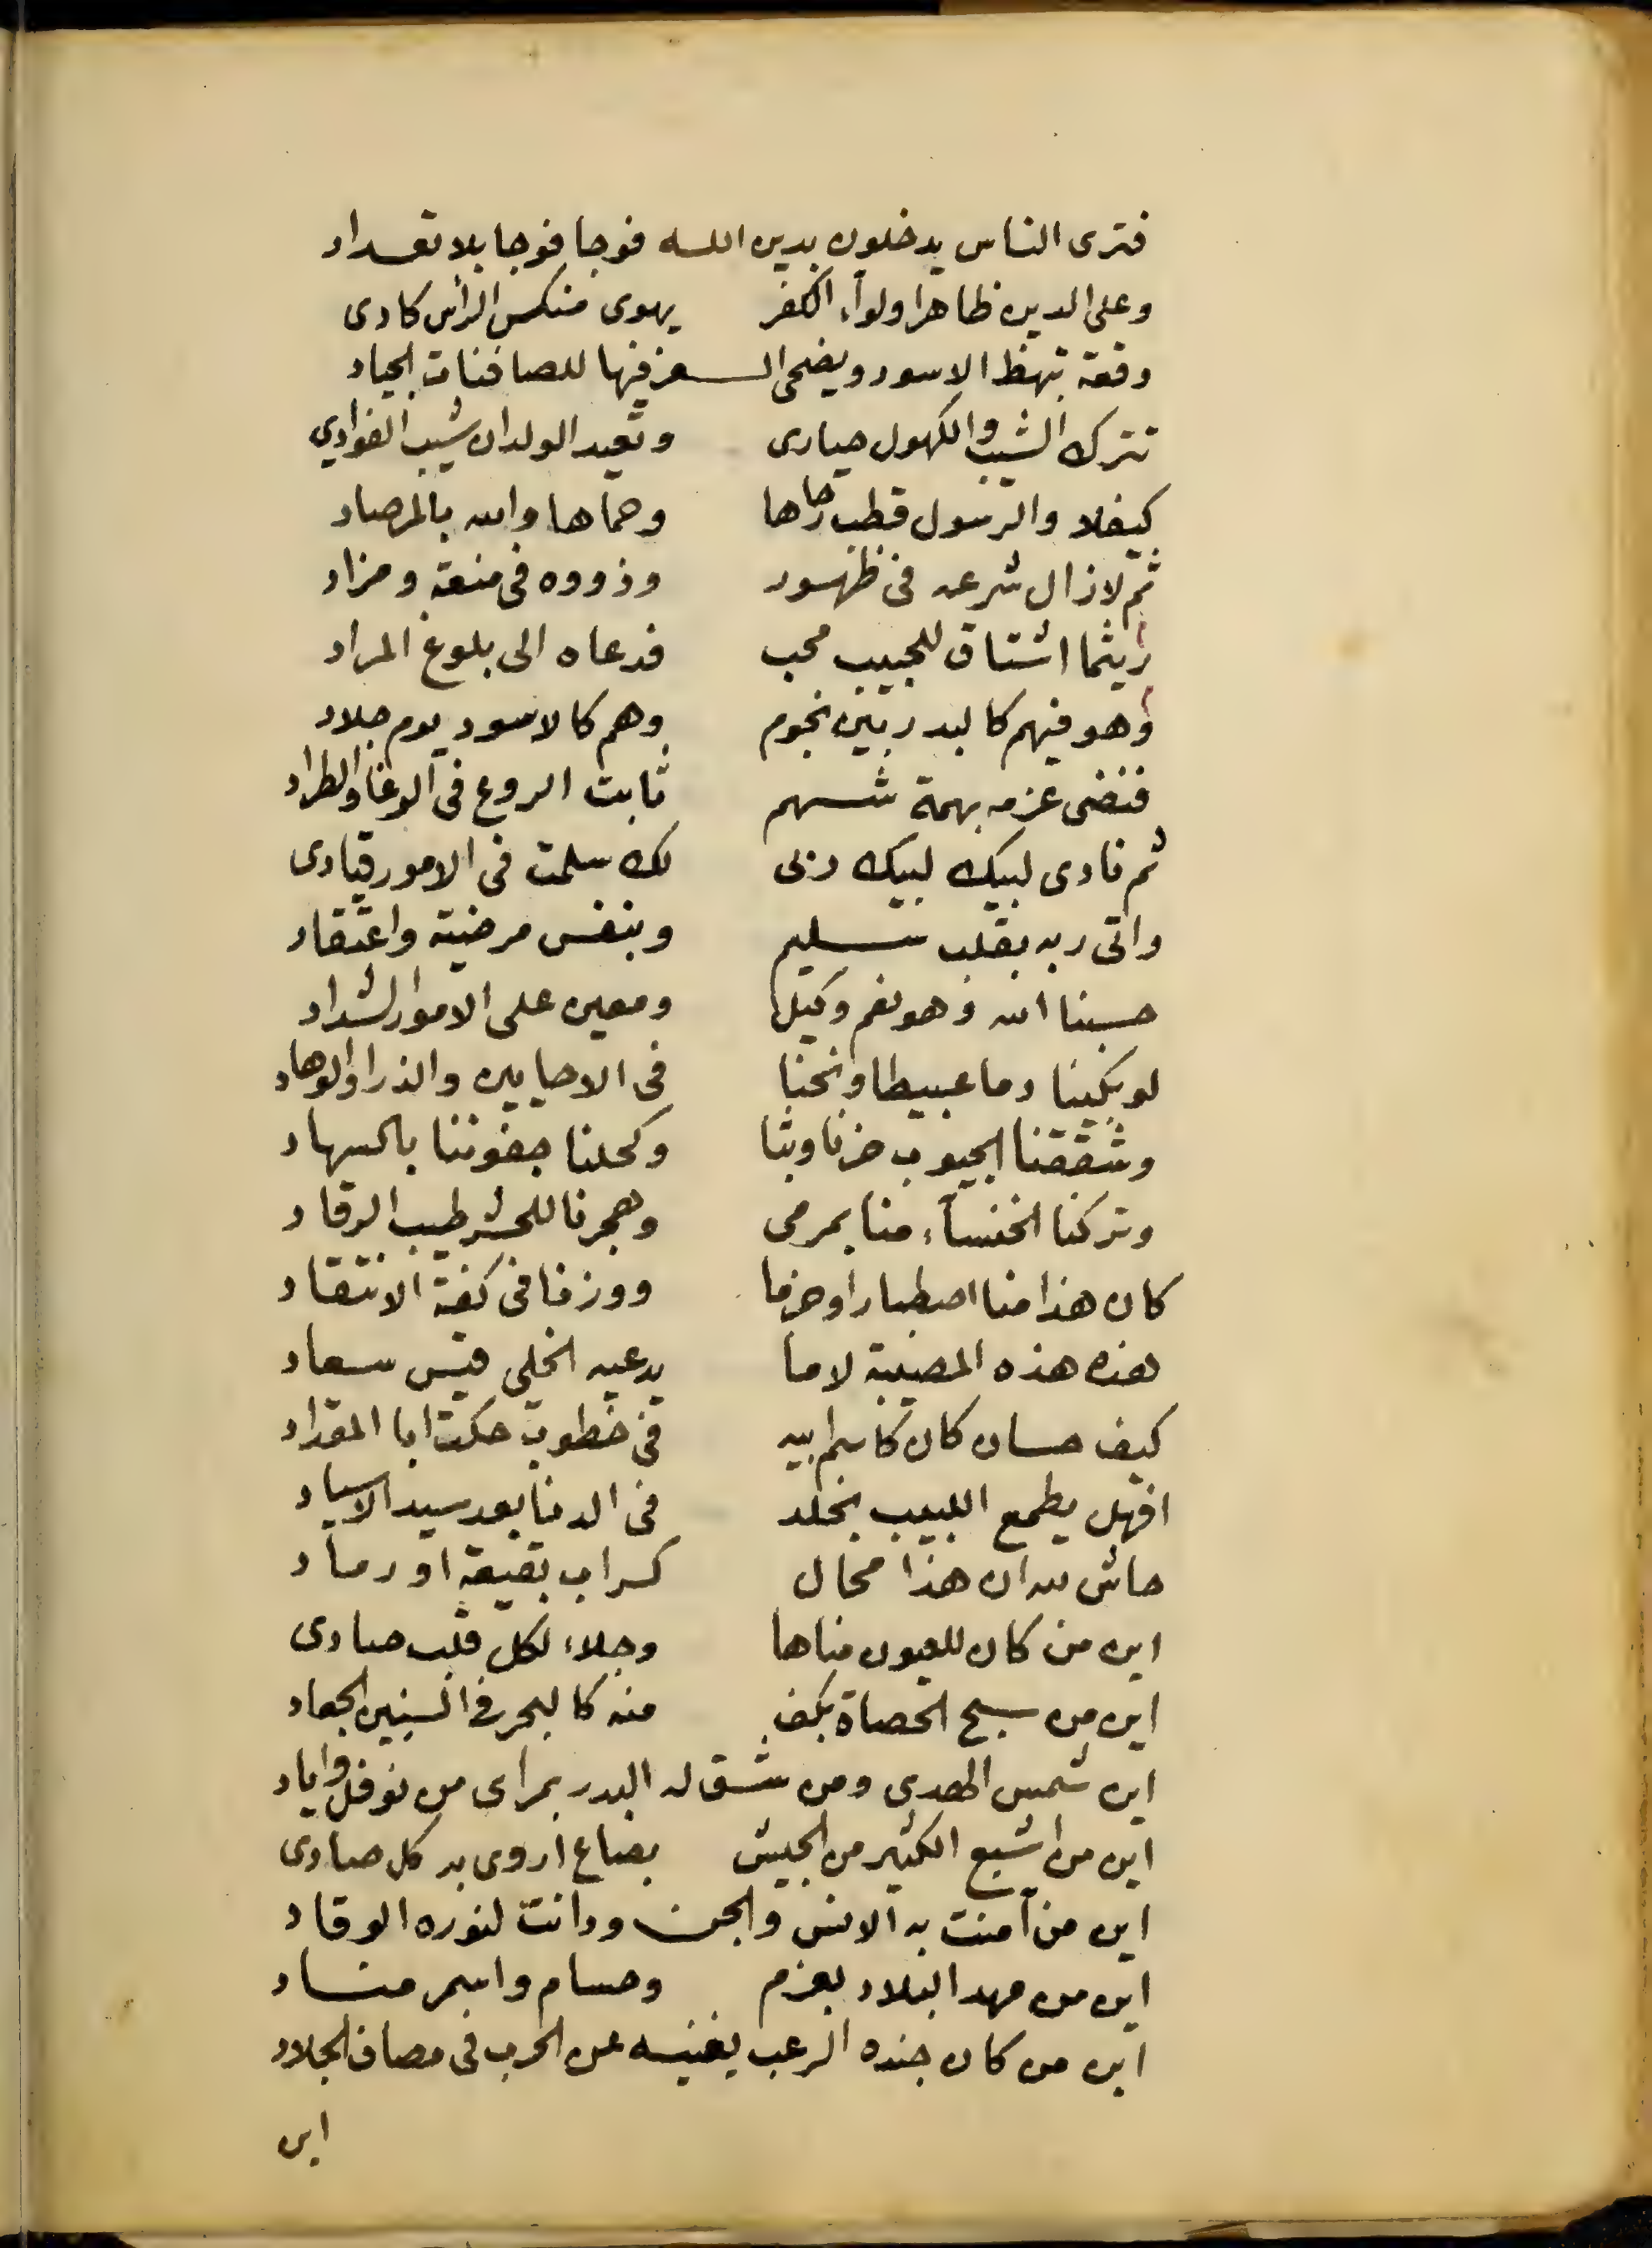 فترى الناس يدخلون بدين اللـه فوجا فوجا بلا تعـداد
وعلى الدين ظاهرا ولوآء الكفر يهوى منكس الرأس كادى
وقعة تبهظ الاسود ويضحى الـعز فيها للصافنات الجياد
تترك الشيب والكهول حيارى وتعيد الولدان شيب الفوادي
كيفلا والرسول قطب رحاها وحماها والله بالمرصاد
ثم لا زال شرعه فى ظهور وذووه فى منعة ومزاد
ريثما اشتاق للحبيب محب فدعاه الى بلوغ المراد
وهو فيهم كالبدر بين نجوم وهم كالاسود يوم جلاد
فنضى عزمه بهمة شـهم ثابت الروع فى الوغا والطراد
ثم نادى لبيك لبيك ربى لك سلمت فى الامور قيادى
واتى ربه بقلب سـليم وبنفس مرضية واعتقاد
حسبنا الله فهو نعم وكيل ومعين على الامور الشداد
لو بكينا دما عبيطا ونحنا فى الاحايين والذرا والوهاد
وشققنا الجيوب حزنا وبثا وكحلنا جفوننا بالسهاد
وتركنا الخنسآء منا بمرمى وهجرنا للحشر طيب الرقاد
كان هذا منا اصطبارا وحزما ووزنا فى كفة الانتقاد
هذه هذه المصيبة لا ما يدعيه الخلي قيس سعاد
كيف حسان كان كاسم ابيه فى خطوب حكت ابا المقداد
افهل يطمع اللبيب بخلد فى الدنا بعد سيد الاسياد
حاش لله ان هذا محال كسراب بقيعة او رماد
اين من كان للعيون مناها وجلاء لكل قلب صادى
اين من سبح الحصاة بكف منه كالبحر فى السنين الجعاد
اين شمس الهدى ومن شـق له البدر بمراى من نوفل واياد
اين من اشبع الكثير من الجيش بصاع اروى به كل صادى
اين من آمنت به الانس والجـن ودانت لنوره الوقاد
اين من مهد البلاد بعزم وحسام واسمر منـاد
اين من كان جنده الرعب يغنيـه عن الحرب فى مصاف الجلاد
اين